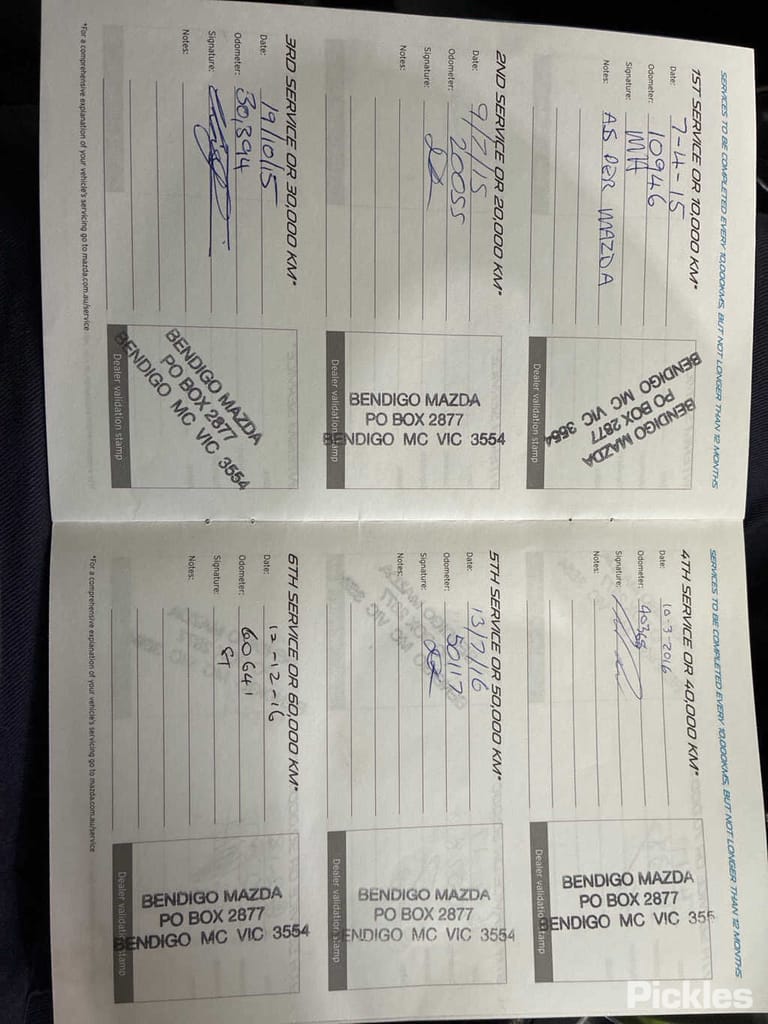 SERVICES TO BE COMPLETED EVERY 10,000KMS, BUT NOT LONGER THAN 12 MONTHS
1ST SERVICE OR 10,000 KM*
Date: 7-4-15
Odometer: 10946
Signature: MA
Notes: AS PER MAZDA
BENDIGO MAZDA
PO BOX 2877
BENDIGO MC VIC 3554
Dealer validation stamp
2ND SERVICE OR 20,000 KM*
Date: 9/7/15
Odometer: 20055
Signature:
Notes:
BENDIGO MAZDA
PO BOX 2877
BENDIGO MC VIC 3554
Dealer validation stamp
3RD SERVICE OR 30,000 KM*
Date: 19/10/15
Odometer: 30,394
Signature:
Notes:
BENDIGO MAZDA
PO BOX 2877
BENDIGO MC VIC 3554
Dealer validation stamp
*For a comprehensive explanation of your vehicle's servicing go to mazda.com.au/service
SERVICES TO BE COMPLETED EVERY 10,000KMS, BUT NOT LONGER THAN 12 MONTHS
4TH SERVICE OR 40,000 KM*
Date: 10-3-2016
Odometer: 40365
Signature:
Notes:
BENDIGO MAZDA
PO BOX 2877
BENDIGO MC VIC 355
Dealer validation stamp
5TH SERVICE OR 50,000 KM*
Date: 13/7/16
Odometer: 50117
Signature:
Notes:
BENDIGO MAZDA
PO BOX 2877
ENDIGO MC VIC 3554
Dealer validation stamp
6TH SERVICE OR 60,000 KM*
Date: 12-12-16
Odometer: 60641
Signature:
Notes:
BENDIGO MAZDA
PO BOX 2877
BENDIGO MC VIC 3554
Dealer validation stamp
*For a comprehensive explanation of your vehicle's servicing go to mazda.com.au/service
Pickles